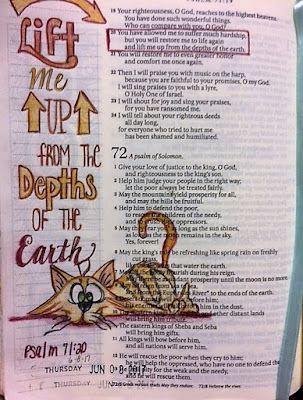 Lift
Me
UP
FROM THE
Depths
OF the
Earth
Psalm 71:20
6·8·17
THURSDAY JUN 0 8 2017
THURSDAY JUN
19 Your righteousness, O God, reaches to the highest heavens.
You have done such wonderful things.
Who can compare with you, O God?
20 You have allowed me to suffer much hardship,
but you will restore me to life again
and lift me up from the depths of the earth.
21 You will restore me to even greater honor
and comfort me once again.
22 Then I will praise you with music on the harp,
because you are faithful to your promises, O my God.
I will sing praises to you with a lyre,
O Holy One of Israel.
23 I will shout for joy and sing your praises,
for you have ransomed me.
24 I will tell about your righteous deeds
all day long,
for everyone who tried to hurt me
has been shamed and humiliated.
72 A psalm of Solomon.
1 Give your love of justice to the king, O God,
and righteousness to the king's son.
2 Help him judge your people in the right way;
let the poor always be treated fairly.
3 May the mountains yield prosperity for all,
and may the hills be fruitful.
4 Help him to defend the poor,
to rescue the children of the needy,
and to crush their oppressors.
5 May they fear you as long as the sun shines,
as long as the moon remains in the sky.
Yes, forever!
6 May the king's rule be refreshing like spring rain on freshly
cut grass,
that water the earth.
flourish during his reign.
abundant prosperity until the moon is no more.
River to the ends of the earth.
before him;
in the dust
other distant lands
will bring him tribute.
The eastern kings of Sheba and Seba
will bring him gifts.
11 All kings will bow before him,
and all nations will serve him.
12 He will rescue the poor when they cry to him;
he will help the oppressed, who have no one to defend them.
pity for the weak and the needy,
and he will rescue them.